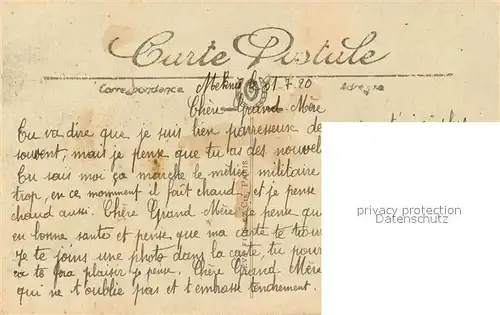 Carte Postale
Correspondance Adresse
Meknès 31-7-20
Chère Grand Mère
Tu va dire que je suis bien parresseux de
souvent, mais je pense que tu as des nouvel
Tu sais moi ça marche le métier militaire
trop, en ce momment il fait chaud, et je pense
chaud aussi. Chère Grand Mère je pense que
en bonne santé et pense que ma carte te trou
Je te joins une photo dans la carte, tu pour
ca te fera plaisir je pense. Chère Grand Mère
qui ne t'oublie pas et t'embrasse tendrement.
privacy protection
Datenschutz